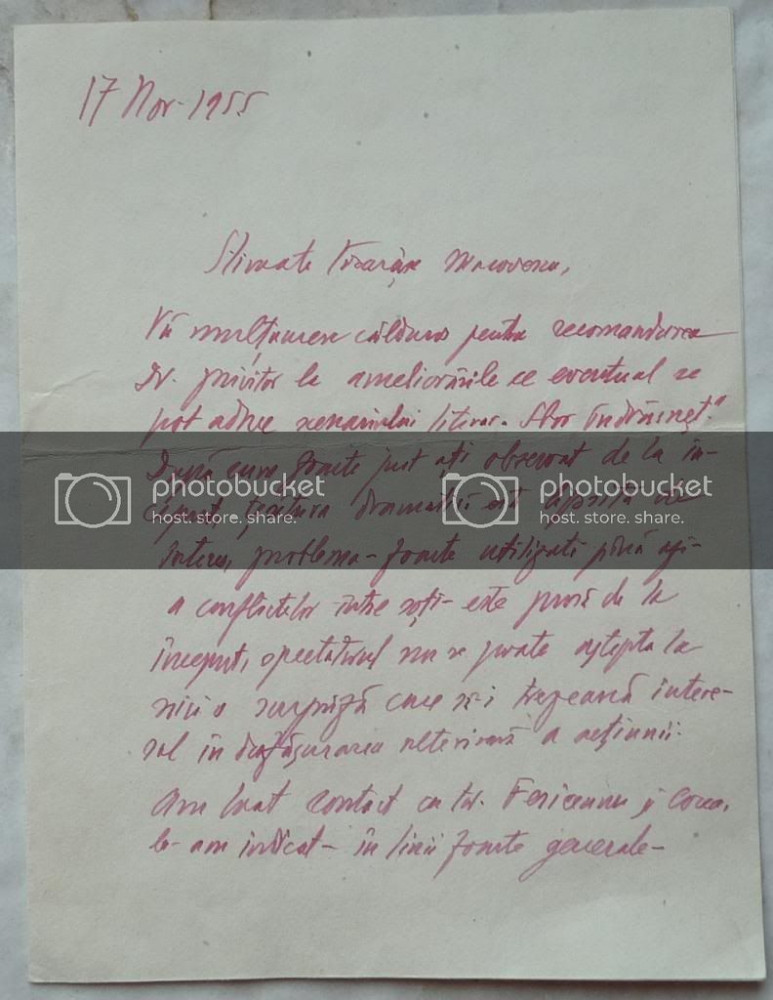 17 Nov. 1955
Stimate Tovarășe Macovescu,
Vă mulțumesc călduros pentru recomandarea
Dv. privitor la ameliorările ce eventual se
pot aduce scenariului literar "Sbor îndrăsneț."
După cum foarte just ați observat de la în-
ceput, țesătura dramatică este lipsită de
interes, problema - foarte utilizată până azi -
a conflictelor între soți - este pusă de la
început, spectatorul nu se poate aștepta la
nici o surpriză care să-i trezească intere-
sul în desfășurarea ulterioară a acțiunii.
Am luat contact cu tov. și Cocea,
le-am indicat - în linii foarte generale -
photobucket
host. store. share.
photobucket
host. store. share.